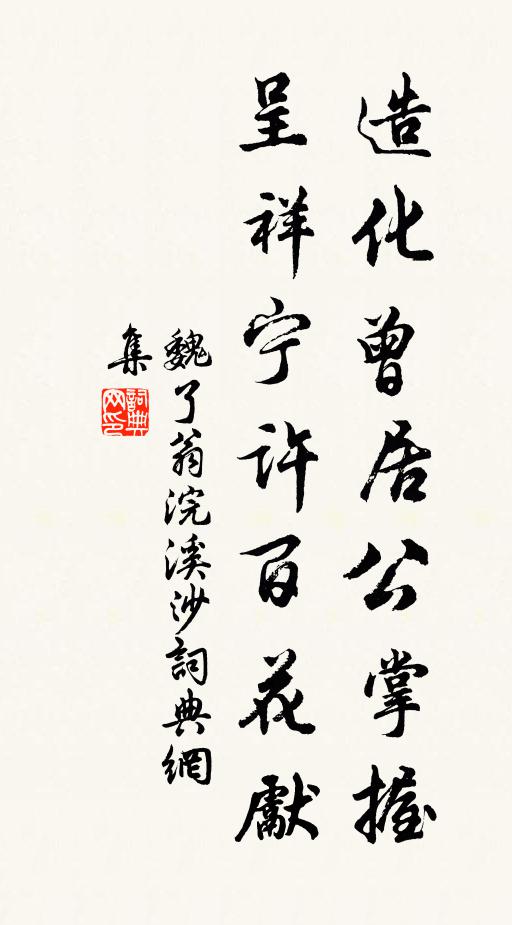 造化曾居公掌握
呈祥宁許百花獻
魏了翁浣溪沙詞典網
集
詞典网印